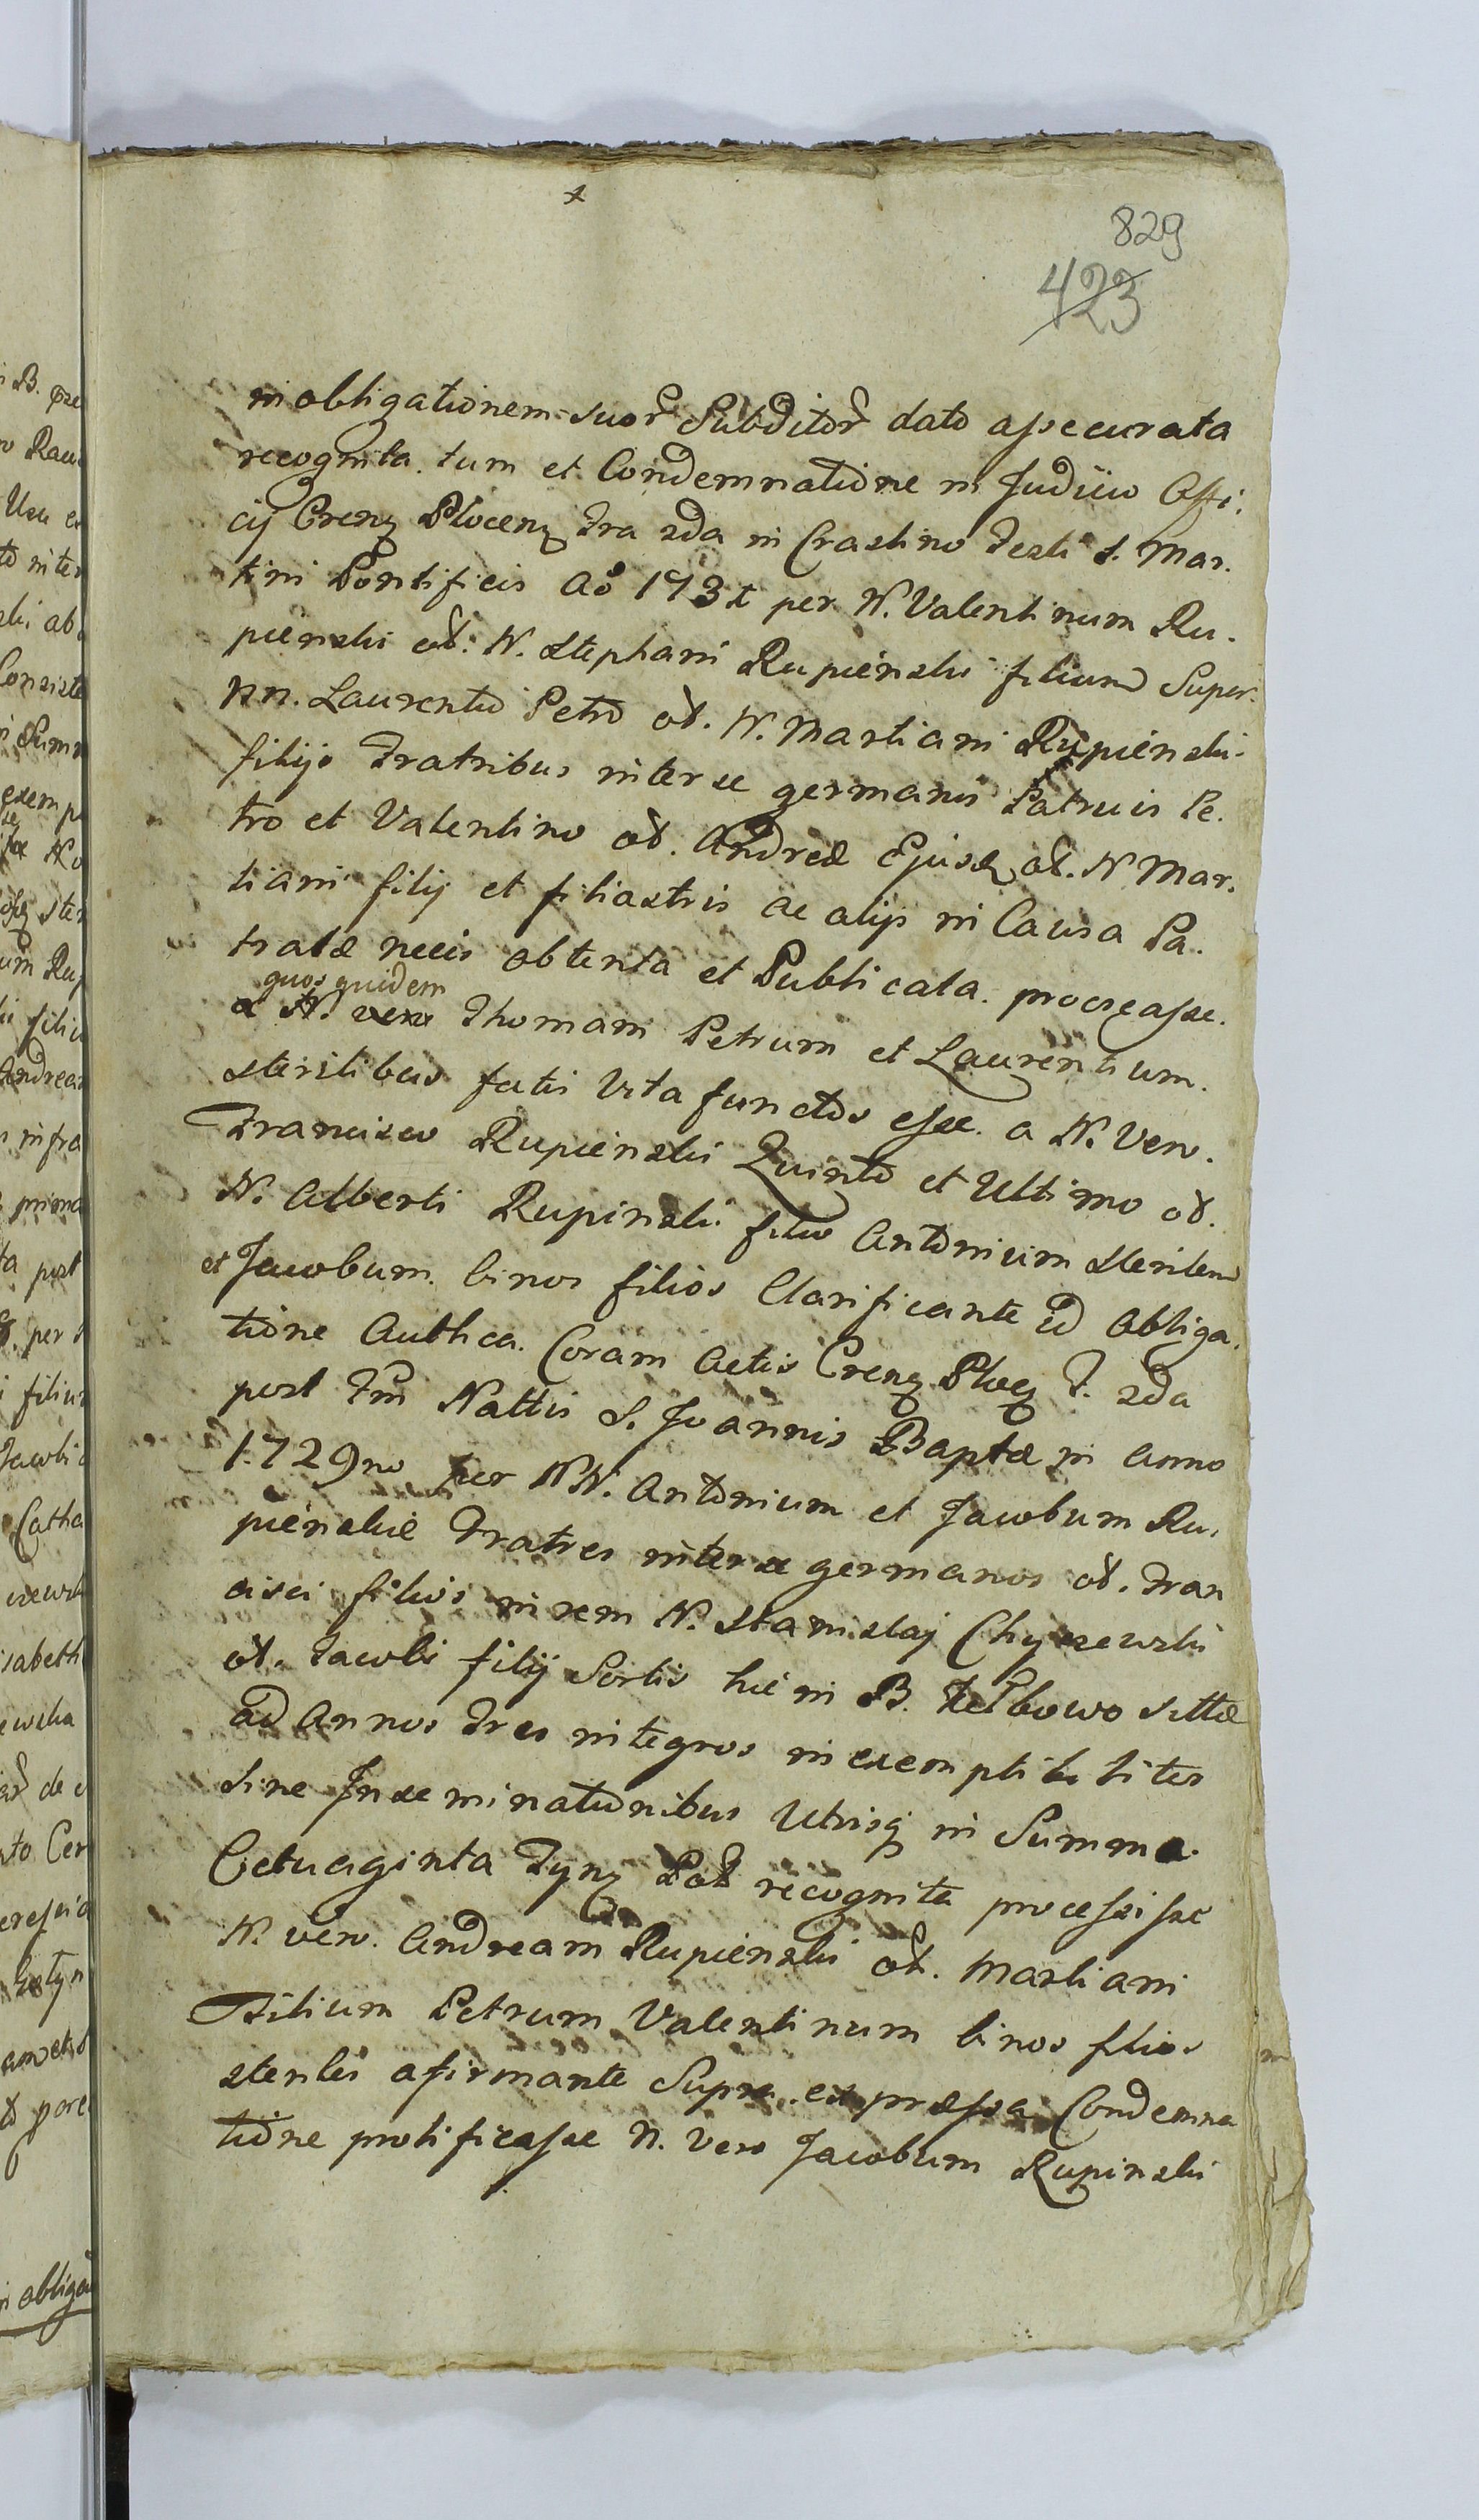 829
423
in obligationem suor Subditor dato assecurata
recognita. tum et Condemnatione in Judicio Offi.
cij Crenz Plocenz Fra 2da in Crastino Festi S. Mar.
tini Pontificis Ao 1731 per N. Valentinum Ru.
pienski ol: N. Stephani Rupienski filium Super
NN. Laurentio Petro ol. N. Martiani Rupienski
filijs Fratribus inter se germanis Patruis Pe.
tro et Valentino ol. Andreæ Ejusd ol. N Mar.
tiani filij et filiastris ac alijs in Causa Pa.
tratæ necis obtenta et Publicata. procreasse.
quos quidem
a N. vero Thomam Petrum et Laurentium.
sterilibus fatis vita functos esse. a N. Vero.
Francisco Rupienski Quinto et Ultimo ol.
N. Alberti Rupinski filio Antonium sterilem
et Jacobum. binos filios Clarificante id Obliga.
tione Authca. Coram Actis Crenz Plocz F. 2da
post Fm Nattis S. Joannis Baptæ in Anno
1729no per NN. Antonium et Jacobum Ru.
pienskie Fratres inter se germanos ol. Fran
cisci filios in rem N. Stanislaj Chyczewski
ol. Jacobi filij Sortis hic in B. sittæ
ad Annos Tres integros inexemptibiliter
sine Inseminationibus Utrisq in Summa.
Octuaginta Fynz Pol recognita processisse
N. vero. Andream Rupienski ol. Martiani
Filium Petrum Valentinum binos filios
steriles afirmante Supra. expressa Condemna
tione prolificasse N. Vero Jacobum Rupinski